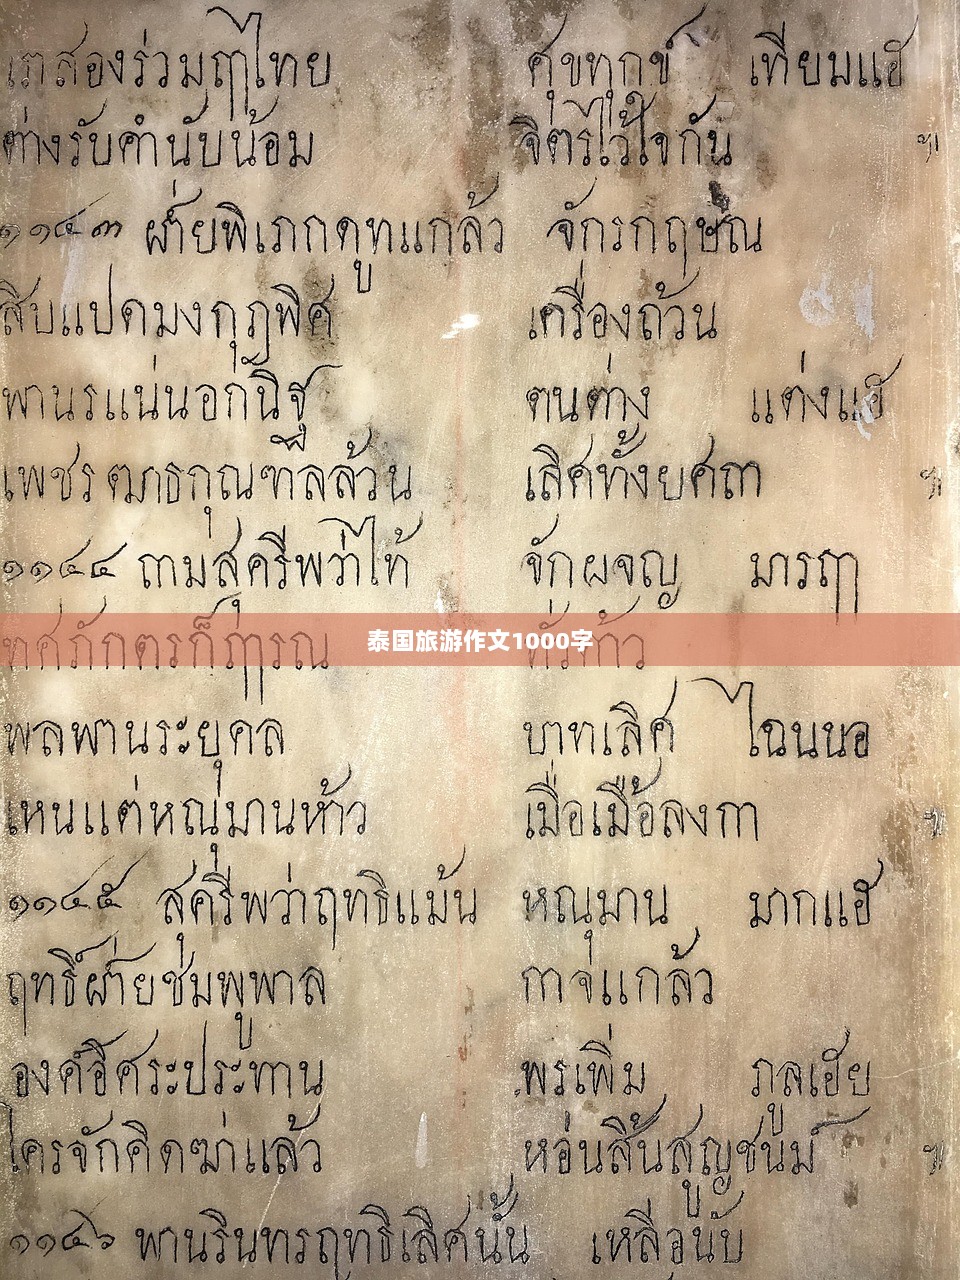 เราสองร่วมฤๅไทย ศุขทุกข์ เทียมแฮ
ต่างรับคำนับน้อม จิตรไว้ใจกัน ฯ
๑๑๔๓ ฝ่ายพิเภกดูทแกล้ว จักรกฤษณ
สิบแปดมงกุฎพิศ เครื่องถ้วน
พานรแน่นอกนิฐ ตนต่าง แต่งแฮ
เพชรฒาธกุณฑลล้วน เลิศทั้งยศถา ฯ
๑๑๔๔ ถามสุครีพว่าไท้ จักผจญ มารฤๅ
ทศภักตรก็ฤๅรณ
泰国旅游作文1000字
พลพานระยุคล บาทเลิศ ไฉนนอ
เหนแต่หณุมานห้าว เมื่อเมื้อลงกา ฯ
๑๑๔๕ สุครีพว่าฤทธิแม้น หณุมาน มากแฮ
ฤทธิ์ฝ่ายชมพูพาล กาจแกล้ว
องค์อิศระประทาน พรเพิ่ม ภูลเฮย
ใครจักคิดฆ่าแล้ว ห่อนสิ้นสูญชนม์ ฯ
๑๑๔๖ พานรินทรฤทธิเลิศนั้น เหลือนับ